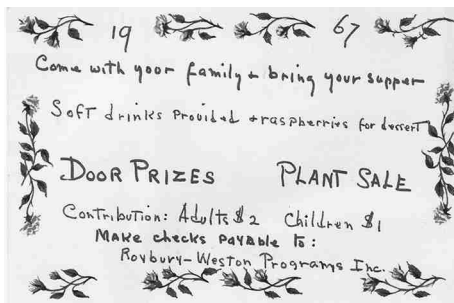 19 67
Come with your family & bring your supper
Soft drinks provided & raspberries for dessert
DOOR PRIZES PLANT SALE
Contribution: Adults $2 Children $1
Make checks payable to:
Roxbury-Weston Programs Inc.